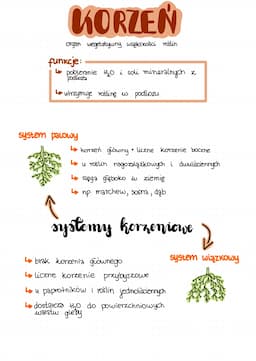 KORZEŃ
organ wegetatywny większości roślin
funkcje:
↳ pobieranie H₂O i soli mineralnych z
podłoża
↳ utrzymuje roślinę w podłożu
system palowy
↳ korzeń główny + liczne korzenie boczne
↳ u roślin nagozalążkowych i dwuliściennych
↳ sięga głęboko w ziemię
↳ np marchew, sosna, dąb
systemy korzeniowe
system wiązkowy
↳ brak korzenia głównego
↳ liczne korzenie przybyszowe
↳ u paprotników i roślin jednoliściennych
↳ dostarcza H₂O do powierzchniowych
warstw gleby